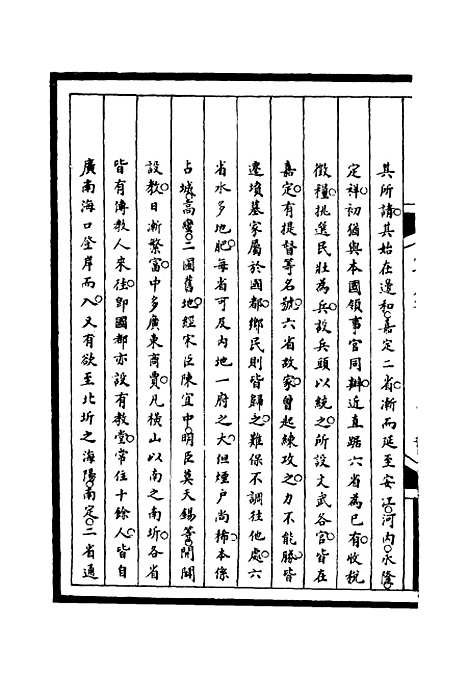 其所請其始在邊和嘉定二省漸而延至安江河内永隆
定祥初猶與本國領事官同辦近直踞六省為已有收税
徵糧挑選民壯為兵設兵頭以統之所設文武各官皆在
嘉定有提督等名號六省故家曾起練攻之力不能勝皆
遷墳墓家屬於國都鄉民則皆歸之難保不調往他處六
省水多地肥每省可及内地一府之大但煙户尚稀本係
占城高蠻二國舊地經宋臣陳宜中明臣莫天錫等開闢
設教日漸繁富中多廣東商賈凡横山以南之南圻各省
皆有傳教人來往卽國都亦設有教堂常住十餘人皆自
廣南海口登岸而入又有欲至北圻之海陽南定二省通